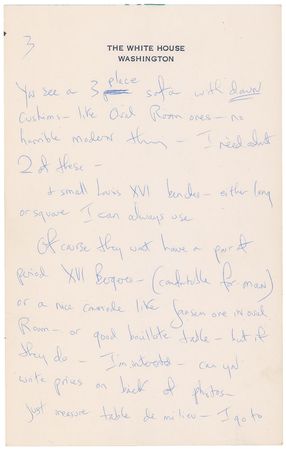 3
THE WHITE HOUSE
WASHINGTON
You see a 3 place sofa with down
cushions – like Oval Room ones – no
horrible modern – I need about
2 of these –
+ small Louis XVI – either long
or square I can always use
Of course they wont have a pair of
period XVI Bergeres – (comfortable for man)
or a nice commode like Jansen one in oval
Room – or good bouillote table – but if
they do – I'm interested – can you
write prices on back of photos –
Just measure table de milieu – I go to